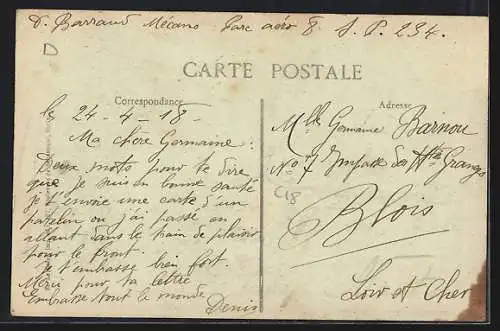 D. Barraud Mécano Parc aéro 8 S. P. 234.
D
CARTE POSTALE
Correspondance
Adresse
le 24-4-18-
Ma chère Germaine :
Deux mots pour te dire
que je suis en bonne santé
je t'envoie une carte d'un
patelin ou j'ai passé en
allant dans le train de plaisir
pour le front.
Je t'embrasse bien fort.
Merci pour ta lettre
Embrasse tout le monde
Denis
Mlle Germaine Barnou
No 7 Impasse des Htes Granges
C18
Blois
Loir et Cher